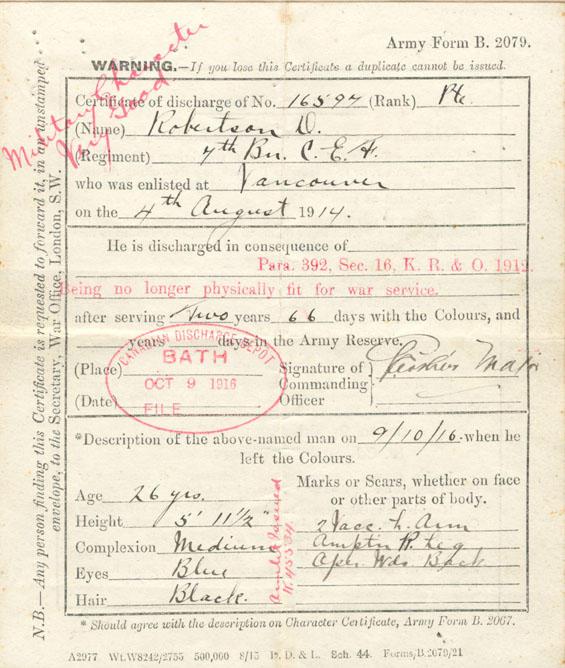 Army Form B. 2079.
WARNING.—If you lose this Certificate a duplicate cannot be issued.
Military Character
Very Good
Certificate of discharge of No. 16597 (Rank) Pte
(Name) Robertson D.
(Regiment) 7th Bn. C.E.F.
who was enlisted at Vancouver
on the 4th August 1914.
He is discharged in consequence of
Para. 392, Sec. 16, K. R. & O. 1912.
Being no longer physically fit for war service.
after serving Two years 66 days with the Colours, and
years days in the Army Reserve.
CANADIAN DISCHARGE DEPOT
BATH
OCT 9 1916
FILE
(Place)
(Date)
Signature of
Commanding
Officer
Major
*Description of the above-named man on 9/10/16 when he
left the Colours.
Age 26 yrs.
Height 5' 11½"
Complexion Medium
Eyes Blue
Hair Black.
Marks or Scars, whether on face
or other parts of body.
2 Vacc. L. Arm
Amptn R. Leg
Oper Wds Back
Issued
* Should agree with the description on Character Certificate, Army Form B. 2067.
A2977 Wt.W8242/2755 500,000 8/15 D. D. & L. Sch. 44. Forms/B.2079/21
N.B.—Any person finding this Certificate is requested to forward it, in an unstamped
envelope, to the Secretary, War Office, London, S.W.